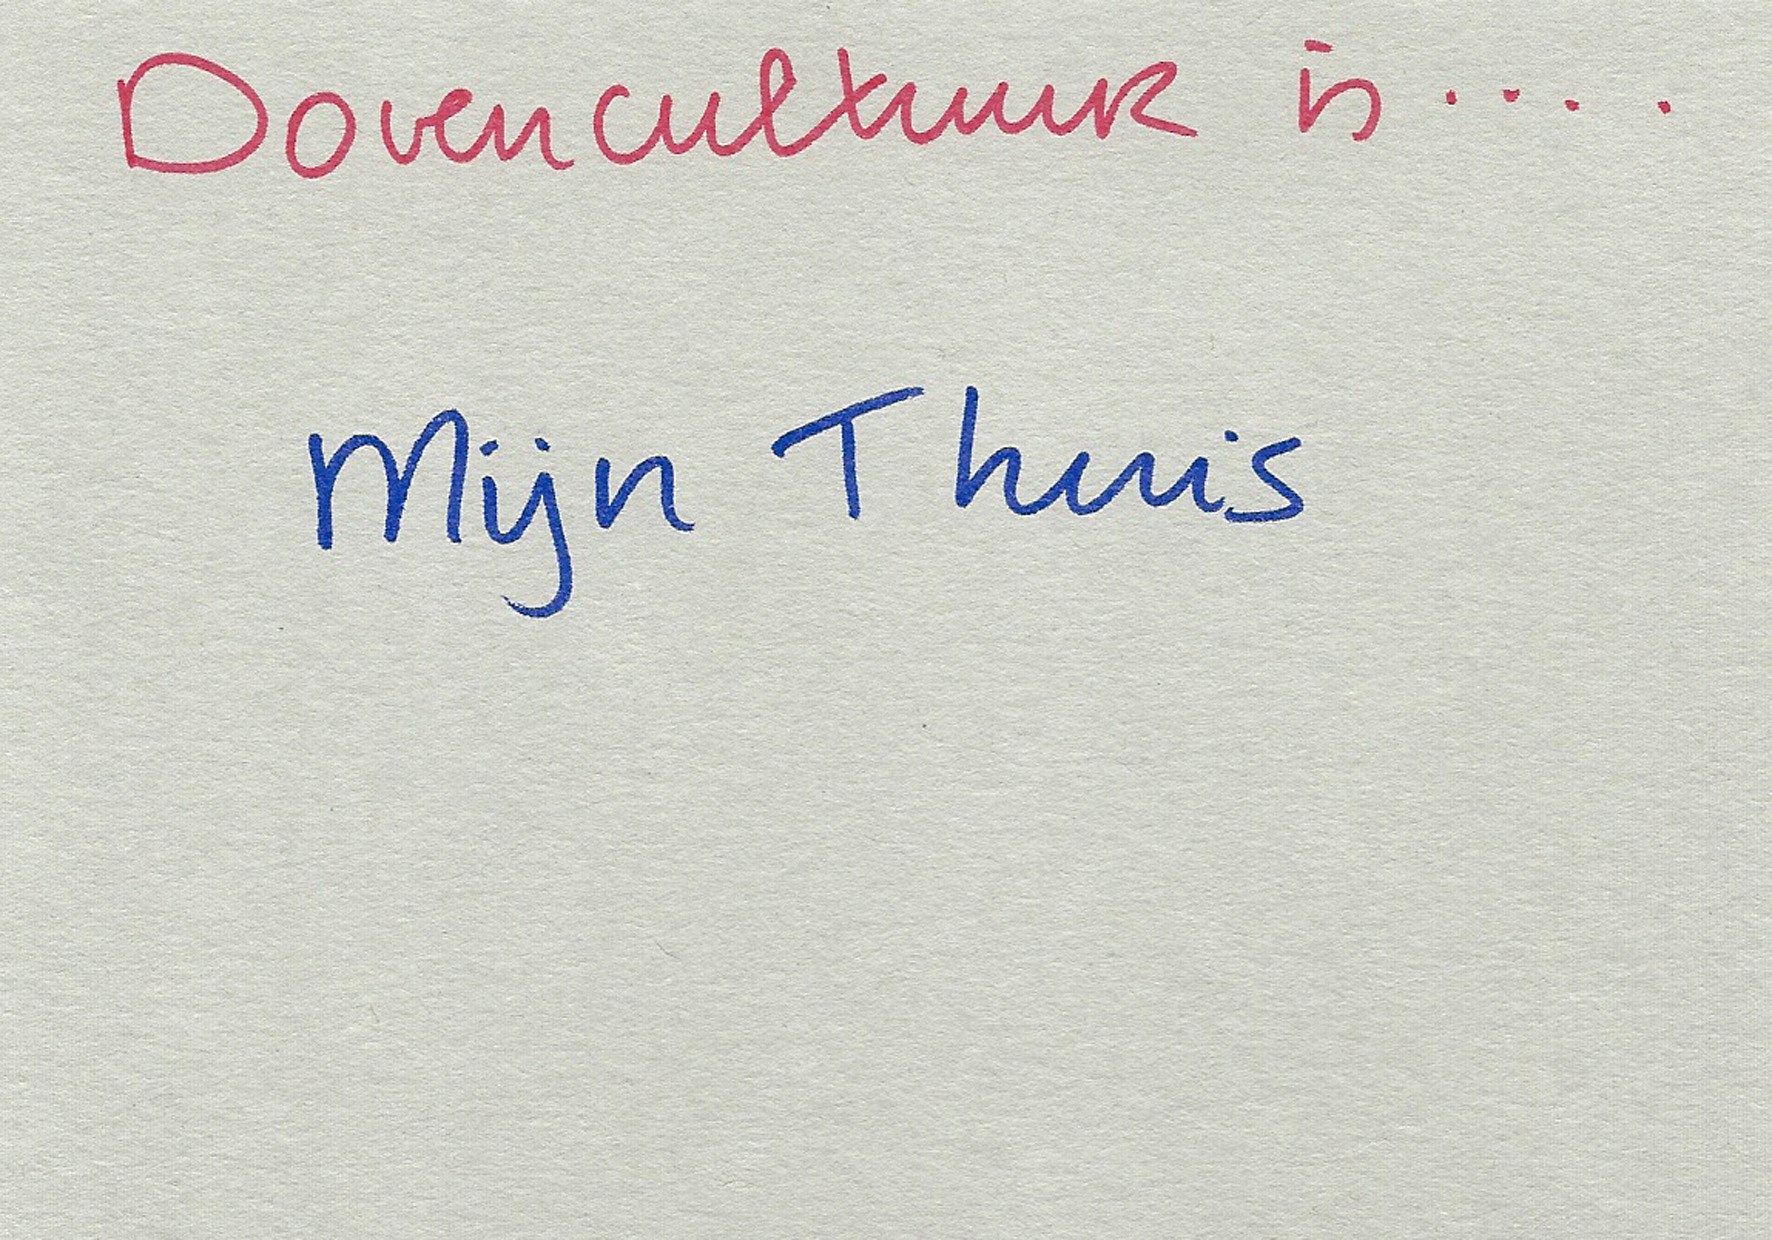 Dovencultuur is....
Mijn Thuis